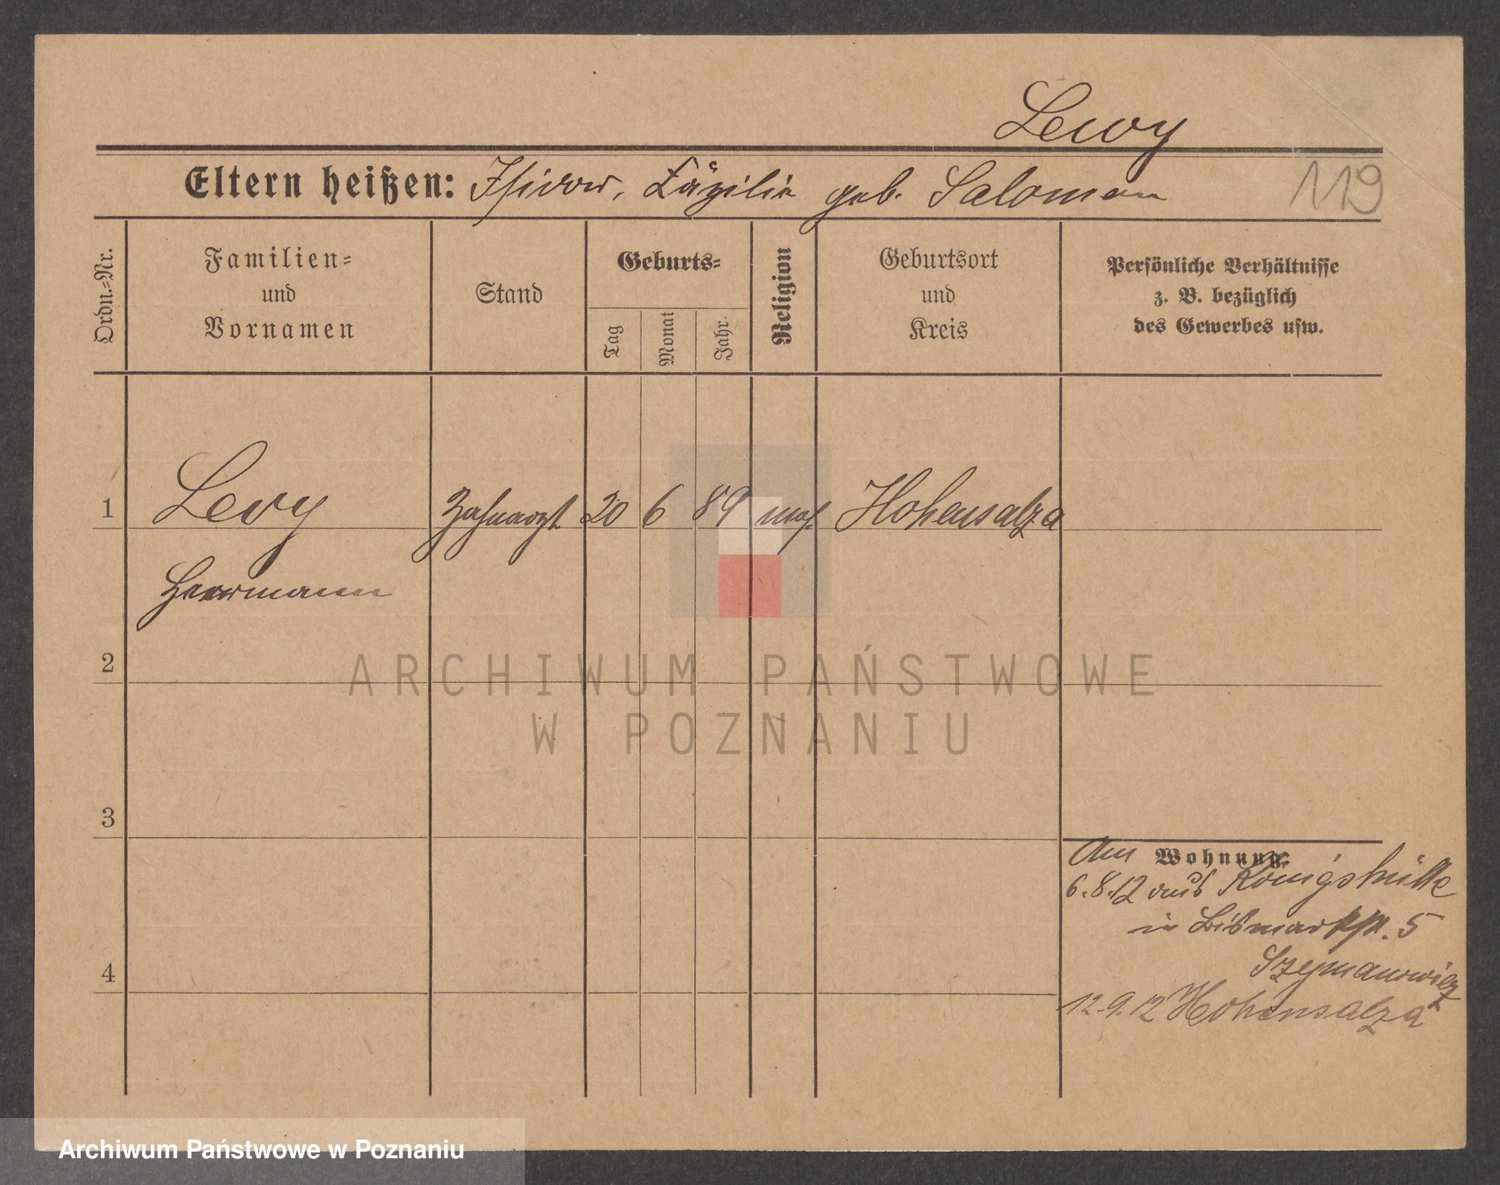 Lewy
Eltern heißen: Isidor, Zäzilie geb. Salomon
119
Ordn.-Nr.
Familien-
und
Vornamen
Stand
Geburts-
Tag
Monat
Jahr
Religion
Geburtsort
und
Kreis
Persönliche Verhältnisse
z. B. bezüglich
des Gewerbes usw.
1 Levy Zahnarzt 20 6 89 mos. Hohensalza
Herrmann
2
3
4
Wohnung.
Am
6.8.12 aus Königshütte
in Bismarkstr. 5
12.9.12 Hohensalza
ARCHIWUM PAŃSTWOWE
W POZNANIU
Archiwum Państwowe w Poznaniu